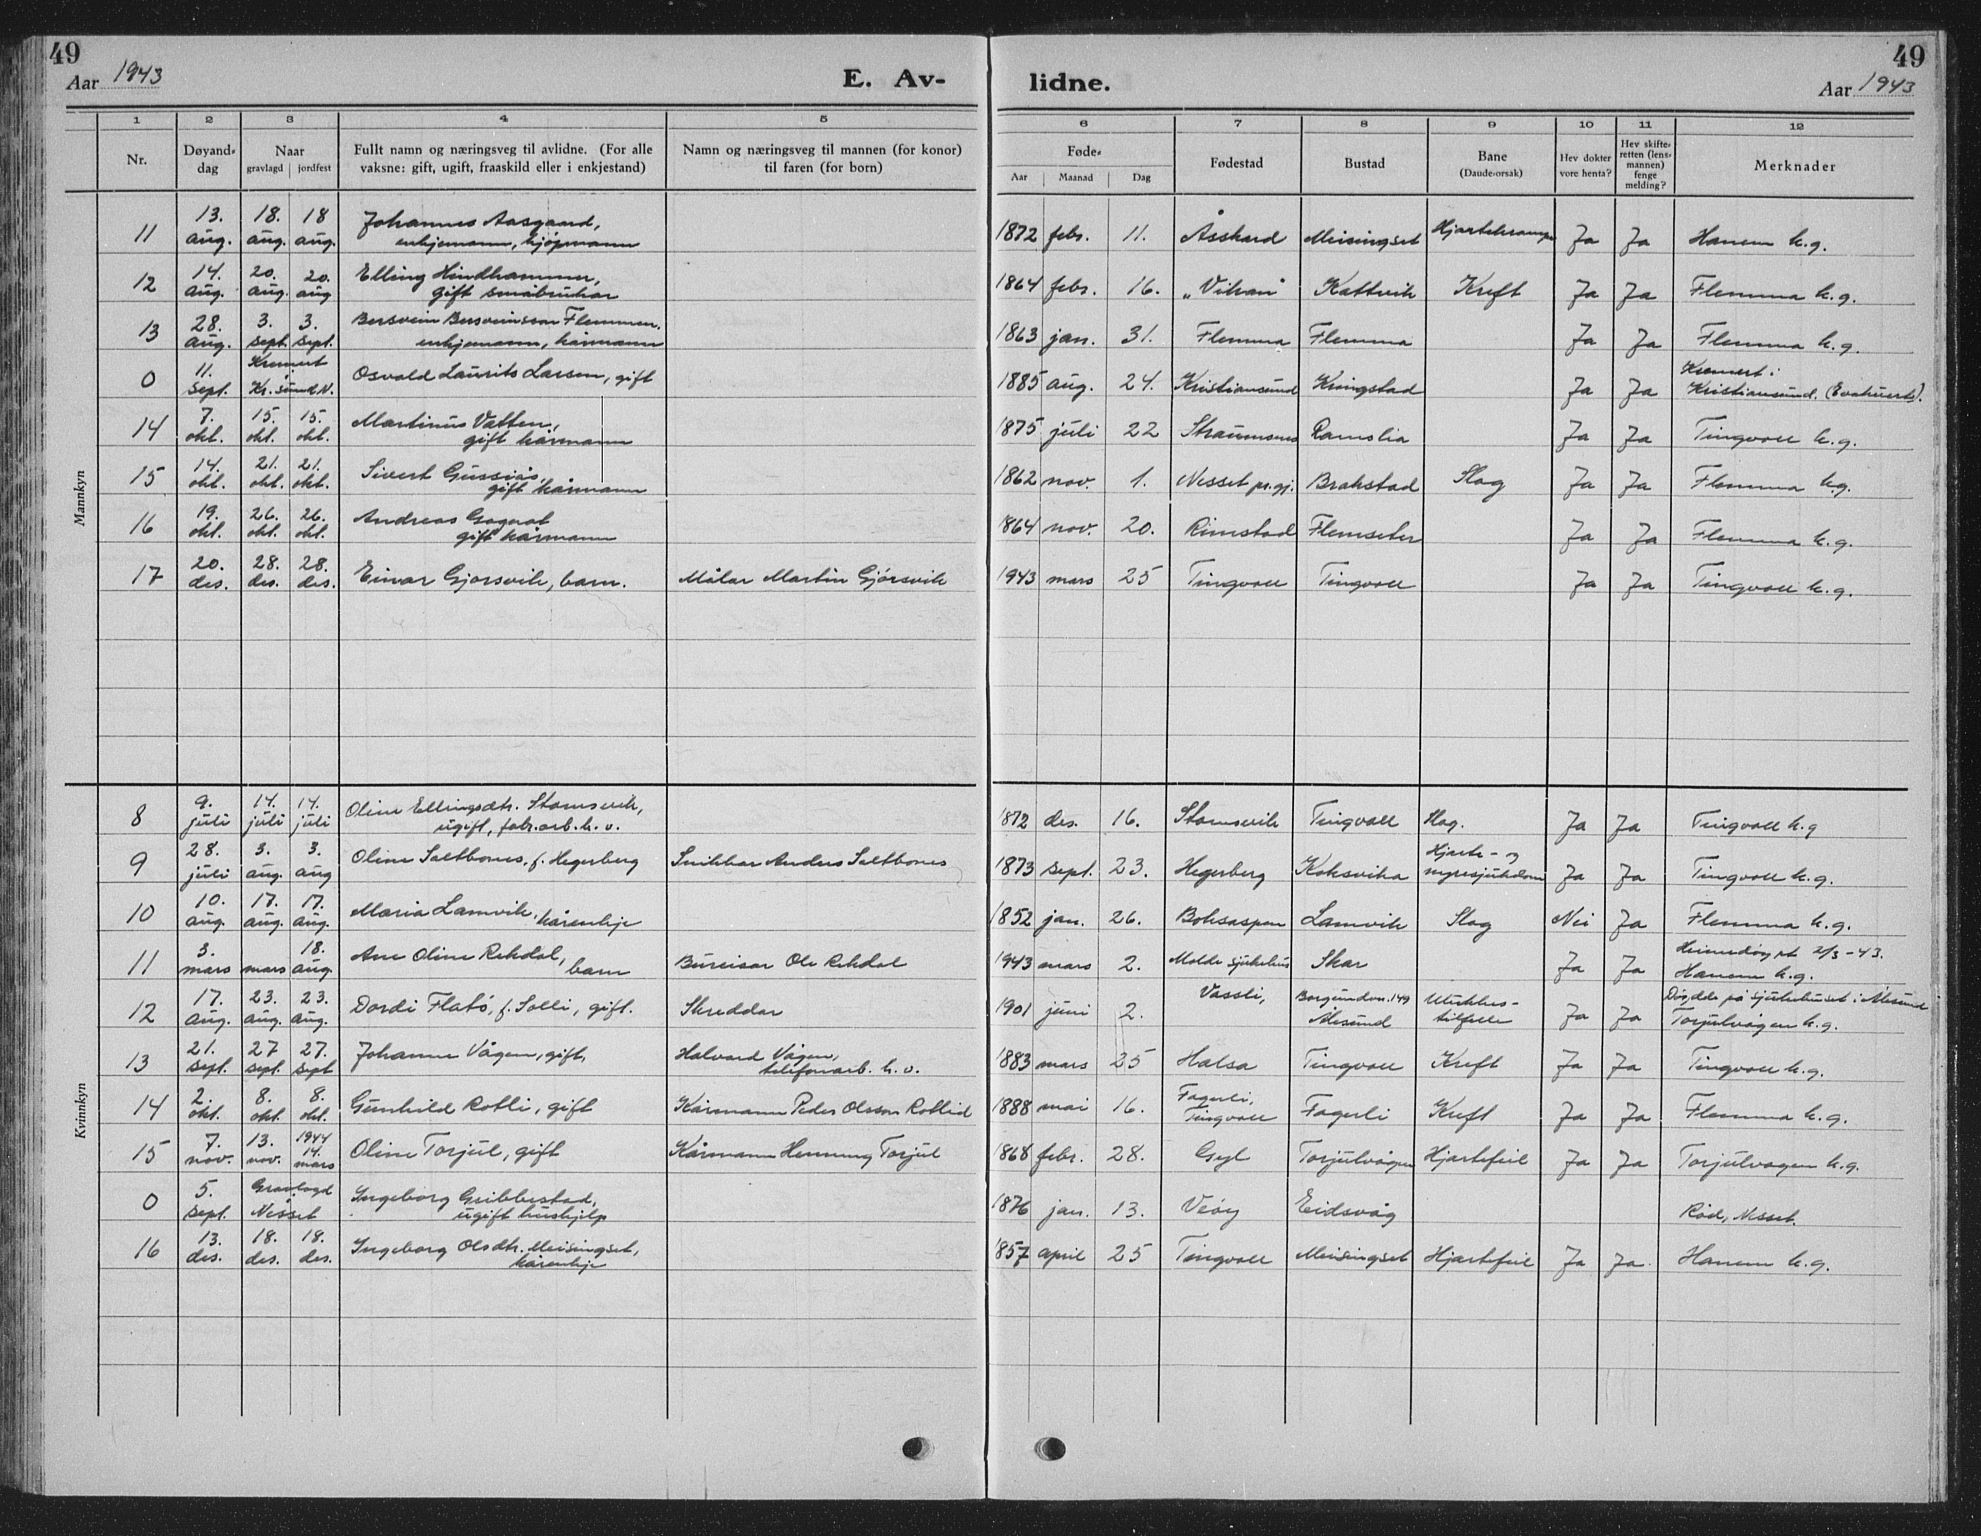 49
Aar 1943
E. Av-
lidne.
49
Aar 1943
1 2 3 4 5 6 7 8 9 10 11 12
Nr.
Døyand-
dag
Naar
gravlagd jordfest
Fullt namn og næringsveg til avlidne. (For alle
vaksne: gift, ugift, fraaskild eller i enkjestand)
Namn og næringsveg til mannen (for konor)
til faren (for born)
Føde-
Aar Maanad Dag
Fødestad
Bustad
Bane
(Daude-orsak)
Hev dokter
vore henta?
Hev skifte-
retten (lens-
mannen)
fenge
melding?
Merknader
Mannkyn
11 13. aug. 18. aug. 18 aug. Johannes Aasgaard, enkjemann, kjøpmann 1872 febr. 11. Åsskard Meisingset Hjartekrampe Ja Ja Hanem k.g.
12 14. aug. 20. aug. 20. aug Elling Hindhammer, gift småbrukar 1864 febr. 16. Kattvik Kreft Ja Ja Flemma k.g.
13 28. aug. 3. sept. 3. sept. Bersvein Bersveinsson Flemmen, enkjemann, kårmann 1863 jan. 31. Flemma Flemma Ja Ja Flemma k.g.
0 11. sept. Kremert Kr.sund N. Osvald Laurits Larsen, gift 1885 aug. 24. Kristiansund Kringstad Ja Ja Kremert i Kristiansund. (Evakuert).
14 7. okt. 15. okt. 15. okt. Martinus Vatten, gift kårmann 1875 juli 22 Straumsnes Ramslia Ja Ja Tingvoll k.g.
15 14. okt. 21. okt. 21. okt. Sivert Gussiås, gift kårmann 1862 nov. 1. Nesset pr.gj. Brakstad Slag Ja Ja Flemma k.g.
16 19. okt. 26. okt. 26. okt. Andreas gift kårmann 1864 nov. 20. Rimstad Flemseter Ja Ja Flemma k.g.
17 20. des. 28. des. 28. des. Einar Gjørsvik, barn. Målar Martin Gjørsvik 1943 mars 25 Tingvoll Tingvoll Ja Ja Tingvoll k.g.
Kvinnkyn
8 9. juli 14. juli 14. juli Oline Ellingsdtr. Stamsvik, ugift, fabr.arb.k.v. 1872 des. 16. Stamsvik Tingvoll Slag. Ja Ja Tingvoll k.g
9 28. juli 3. aug. 3. aug Oline Saltbones, f. Hegerberg Snikkar Anders Saltbones 1873 sept. 23. Hegerberg Koksvika Hjarte- og nyresjukdom Ja Ja Tingvoll k.g.
10 10. aug 17. aug. 17. aug. Maria Lamvik, kårenkje 1852 jan. 26. Boksaspen Lamvik Slag Nei Ja Flemma k.g.
11 3. mars mars 18. aug. Ane Oline Rekdal, barn Bureisar Ole Rekdal 1943 mars 2. Molde sjukehus Skar Ja Ja Heimedøypt 2/3-43. Hanem k.g.
12 17. aug. 23. aug. 23. aug. Dordi Flatö, f. Solli, gift. Skreddar 1901 juni 2. Vassli, Borgundvn. 149 Ålesund Ulukkes- tilfelle Ja Ja Døydde på sjukehuset i Ålesund Torjulvågen k.g.
13 21. sept. 27 sept 27. sept Johanne Vågen, gift, Halvard Vågen, telefonarb. k.v. 1883 mars 25 Halsa Tingvoll Kreft Ja Ja Tingvoll k.g.
14 2. okt. 8. okt. 8. okt. Gunhild Rotli, gift Kårmann Peder Olsson Rotlid 1888 mai 16. Fagerli, Tingvoll Fagerli Kreft Ja Ja Flemma k.g.
15 7. nov. 13. nov. 1944 14. mars Oline Torjul, gift Kårmann Henning Torjul 1868 febr. 28. Gyl Torjulvågen Hjartefeil Ja Ja Torjulvågen k.g.
0 5. sept. Gravlagd Nesset Ingeborg Gribbestad, ugift hushjelp 1876 jan. 13. Veøy Eidsvåg Rød, Nesset.
16 13. des. 18. des. 18. des. Ingeborg Olsdtr. Meisingset, kårenkje 1857 april 25 Tingvoll Meisingset Hjartefeil Ja Ja. Hanem k.g.